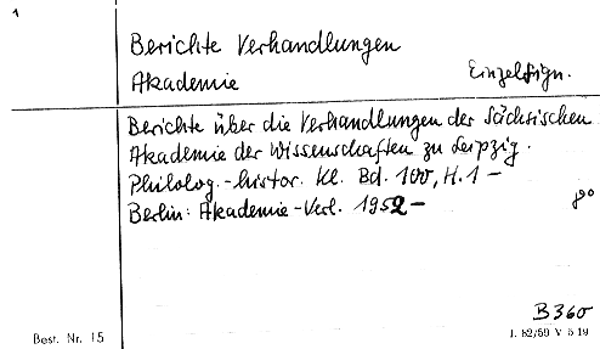 1
Berichte Verhandlungen
Akademie Einzelsign.
Berichte über die Verhandlungen der Sächsischen
Akademie der Wissenschaften zu Leipzig.
Philolog.-histor. Kl. Bd. 100, H. 1 –
Berlin: Akademie-Verl. 1952 –
8°
B360
Best. Nr. 15 J. 52/59 V 5 19